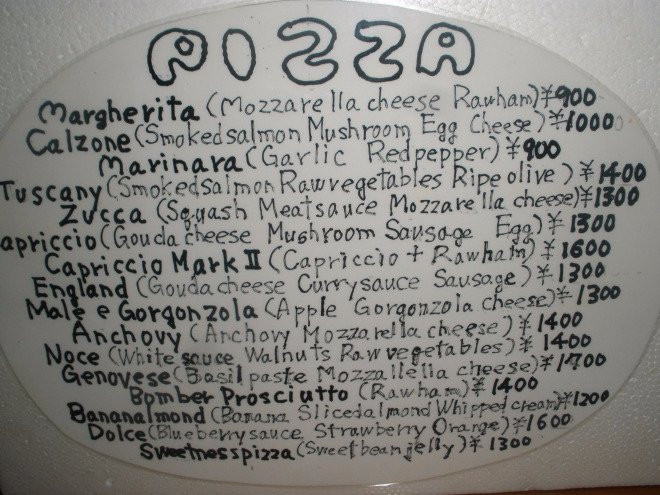 PIZZA
Margherita (Mozzarella cheese Rawham) ¥900
Calzone (Smokedsalmon Mushroom Egg Cheese) ¥1000
Marinara (Garlic Redpepper) ¥900
Tuscany (Smokedsalmon Rawvegetables Ripe olive) ¥1400
Zucca (Squash Meatsauce Mozzarella cheese) ¥1300
apriccio (Gouda cheese Mushroom Sausage Egg) ¥1300
Capriccio Mark II (Capriccio + Rawham) ¥1600
England (Goudacheese Currysauce Sausage) ¥1300
Male e Gorgonzola (Apple Gorgonzola cheese) ¥1300
Anchovy (Anchovy Mozzarella cheese) ¥1400
Noce (White sauce Walnuts Rawvegetables) ¥1400
Genovese (Basilpaste Mozzallella cheese) ¥1700
Bomber Prosciutto (Rawham) ¥1400
Bananalmond (Banana Slicedalmond Whipped cream) ¥1200
Dolce (Blueberrysauce Strawberry Orange) ¥1600
Sweetnesspizza (Sweetbeanjelly) ¥1300